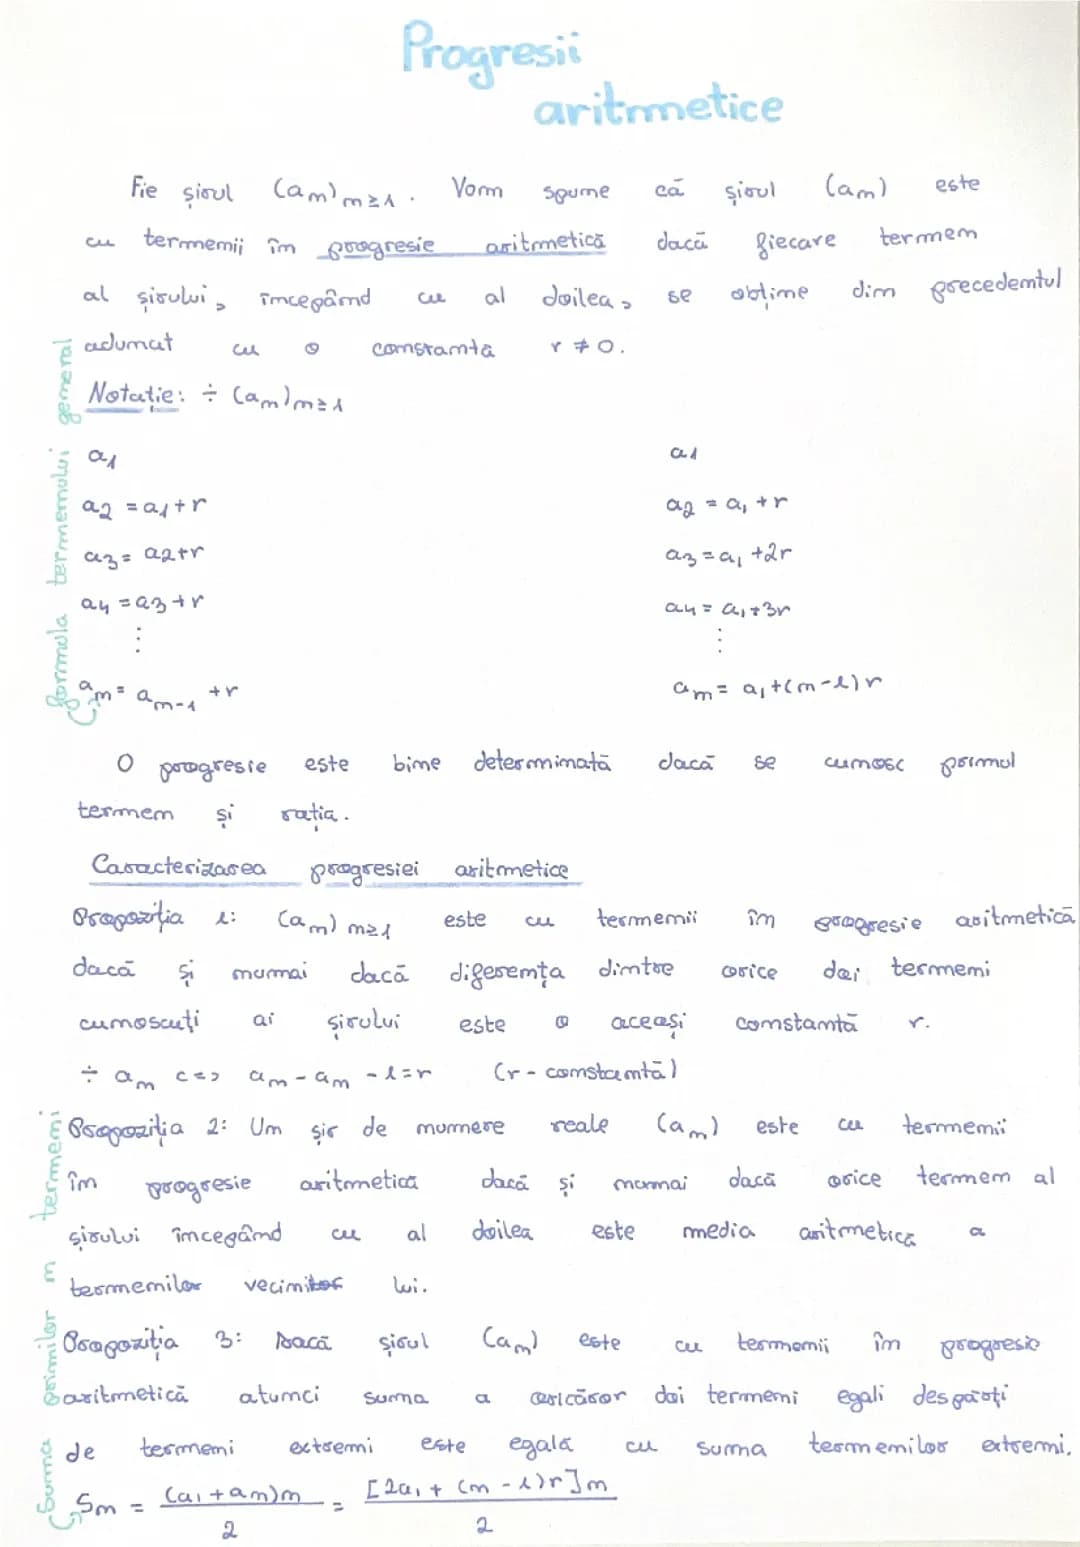 Progresii
aritmetice
Fie șirul (an)n≥1. Vom spune că șirul (an) este
cu termenii în progresie aritmetică dacă fiecare termen
al șirului, începând cu al doilea, se obține din precedentul
adunat cu o constantă r ≠ 0.
Notație: ÷ (an)n≥1
formula termenului general
a1
a2 = a1 + r
a3 = a2 + r
a4 = a3 + r
⋮
an = an-1 + r
a1
a2 = a1 + r
a3 = a1 + 2r
a4 = a1 + 3r
⋮
an = a1 + (n-1)r
O progresie este bine determinată dacă se cunosc primul
termen și rația.
Caracterizarea progresiei aritmetice
Propoziția 1: (an)n≥1 este cu termenii în progresie aritmetică
dacă și numai dacă diferența dintre orice doi termeni
cunoscuți ai șirului este o aceași constantă r.
÷ an <=> an - an - 1 = r (r - constantă)
Propoziția 2: Un șir de numere reale (an) este cu termenii
în progresie aritmetică dacă și numai dacă orice termen al
șirului începând cu al doilea este media aritmetică a
termenilor vecinilor lui.
Propoziția 3: Dacă șirul (an) este cu termenii în progresie
aritmetică atunci suma a oricăror doi termeni egali despărți
de termeni extremi este egală cu suma termenilor extremi.
Suma primilor n termeni
Sn = (a1 + an)n / 2 = [2a1 + (n - 1)r]n / 2